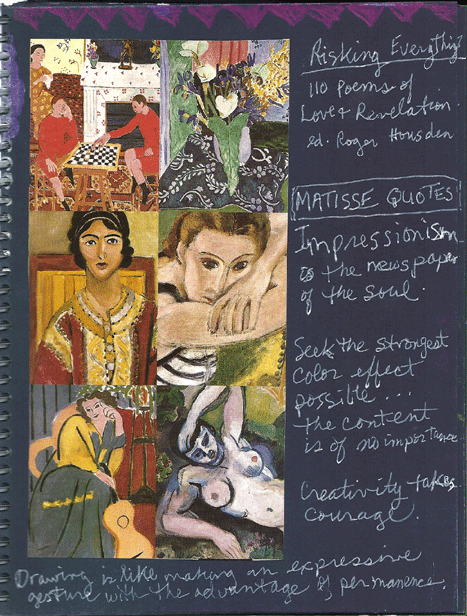 Risking Everything
110 Poems of
Love & Revelation
ed. Roger Housden
MATISSE QUOTES
Impressionism
is the newspaper
of the soul.
Seek the strongest
color effect
possible...
the content
is of no importance
Creativity takes
courage.
Drawing is like making an expressive
gesture with the advantage of permanence.